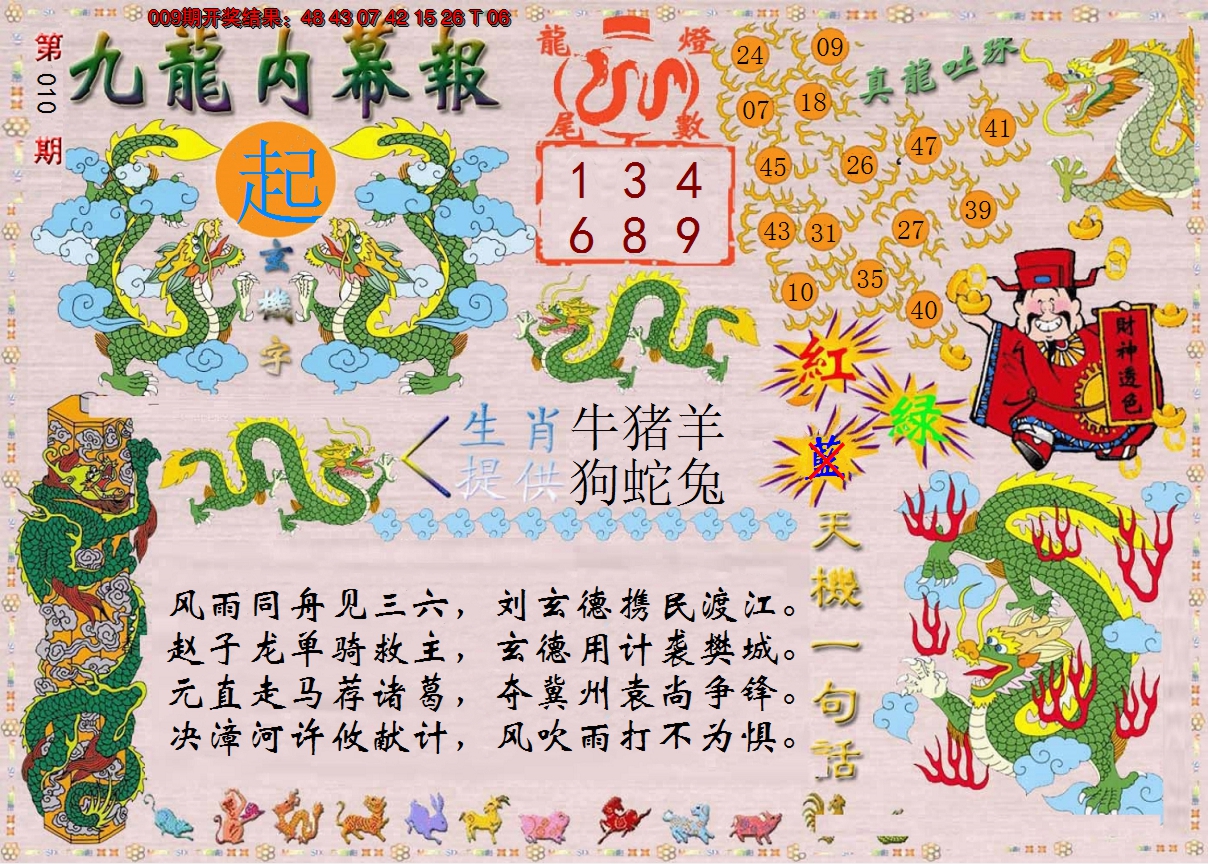 009期开奖结果：48 43 07 42 15 26 T 06
第010期
九龍内幕報
起
玄機字
龍燈
尾數
1 3 4
6 8 9
真龍吐珠
24 09
07 18
47 41
45 26
39
43 31 27
35
10 40
財神透色
紅
綠
藍
生肖 牛猪羊
提供 狗蛇兔
天機一句話
风雨同舟见三六，刘玄德携民渡江。
赵子龙单骑救主，玄德用计袭樊城。
元直走马荐诸葛，夺冀州袁尚争锋。
决漳河许攸献计，风吹雨打不为惧。